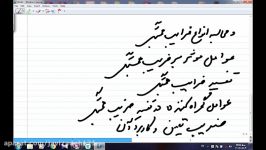 محاسبه انواع ضرایب همبستگی
عوامل موثر بر ضریب همبستگی
تفسیر ضرایب همبستگی
عوامل گمراه کننده در تفسیر ضریب همبستگی
ضریب تعیین و کاربرد آن